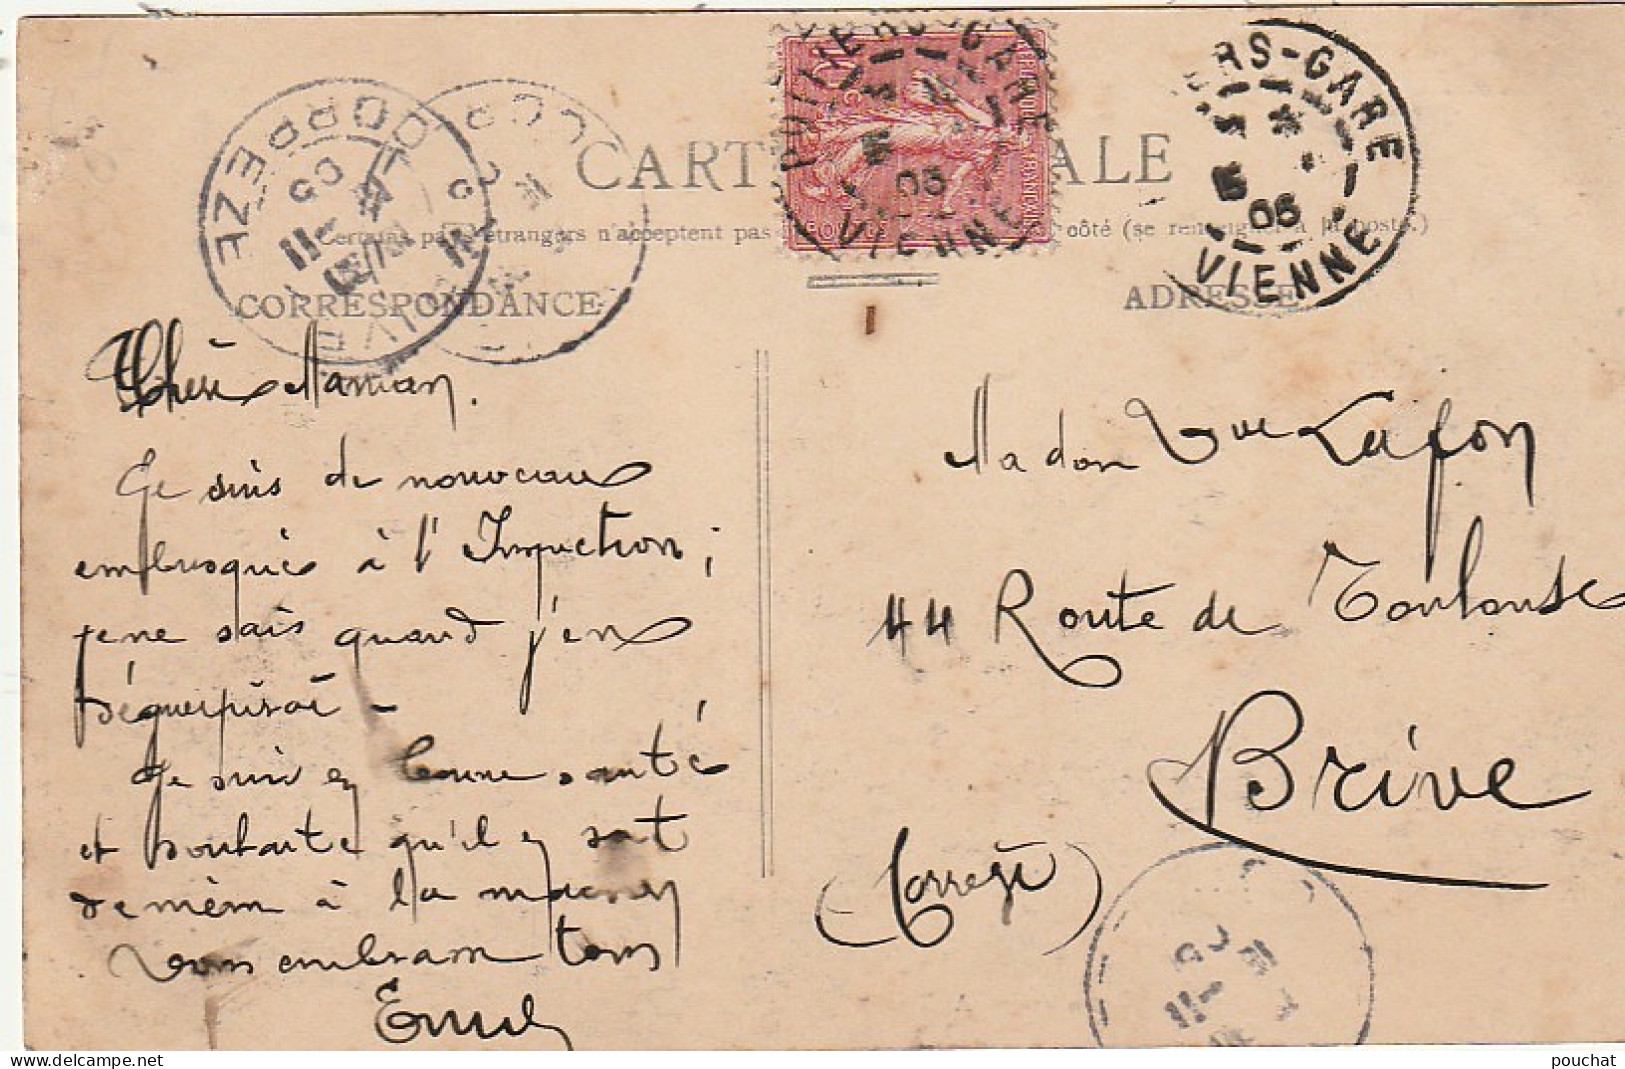 CARTE POSTALE
Certains pays étrangers n'acceptent pas côté (se renseigner à la poste.)
CORRESPONDANCE
ADRESSE
POITIERS-GARE
VIENNE
05
ERS-GARE
VIENNE
05
CORREZE
05
Chère Maman.
Je suis de nouveau
embusqué à l'Inspection ;
je ne sais quand j'en
déguerpirai -
Je suis en bonne santé
et souhaite qu'il en soit
de même à la maison
Vous embrassant tous
Emile
Madame Vve Lafon
44 Route de Toulouse
Brive
(Corrèze)
pouchat